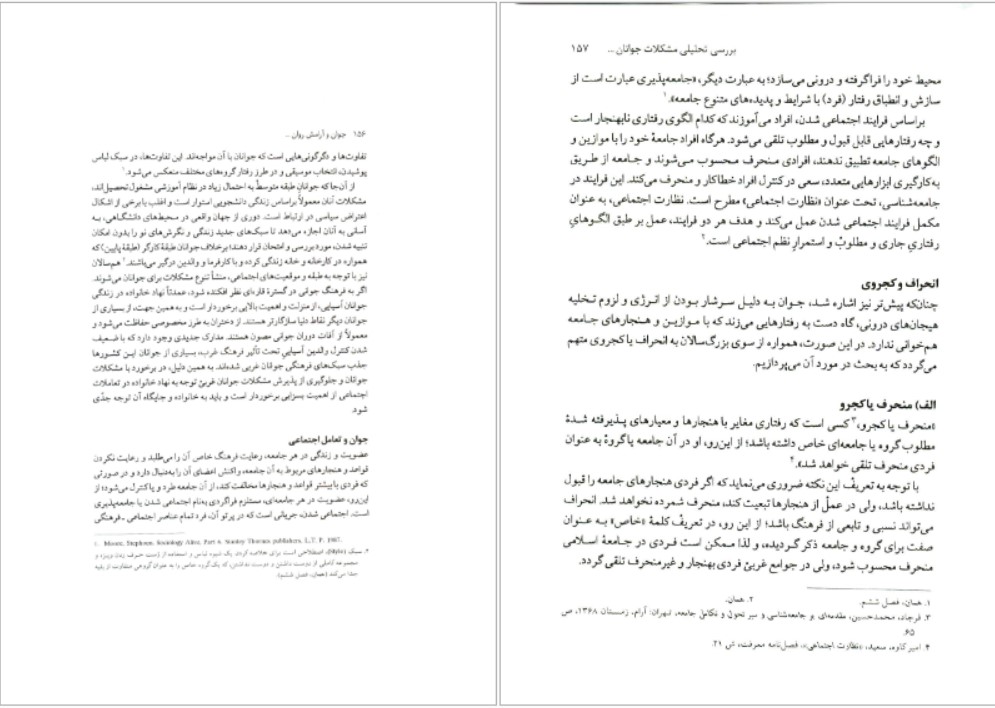 ۱۵۶ جوان و آرامش روان ..
تفاوت‌ها و دگرگونی‌هایی است که جوانان با آن مواجه‌اند. این تفاوت‌ها، در سبک لباس
پوشیدن، انتخاب موسیقی و در طرز رفتار گروه‌های مختلف منعکس می‌شود.۱
از آن‌جا که جوانان طبقه متوسط به احتمال زیاد در نظام آموزشی مشغول تحصیل‌اند،
مشکلات آنان معمولاً براساس زندگی دانشجویی استوار است و اغلب با برخی از اشکال
اعتراض سیاسی در ارتباط است. دوری از جهان واقعی در محیط‌های دانشگاهی، به
آسانی به آنان اجازه می‌دهد تا سبک‌های جدید زندگی و نگرش‌های نو را بدون امکان
تنبیه شدن، مورد بررسی و امتحان قرار دهند؛ برخلاف جوانان طبقهٔ کارگر (طبقهٔ پایین) که
همواره در کارخانه و خانه زندگی کرده و با کارفرما و والدین درگیر می‌باشند.۲ هم‌سالان
نیز با توجه به طبقه و موقعیت‌های اجتماعی، منشأ تنوع مشکلات برای جوانان می‌شوند.
اگر به فرهنگ جوانی در گسترهٔ قاره‌ای نظر افکنده شود، عمدتاً نهاد خانواده در زندگی
جوانان آسیایی، از منزلت و اهمیت بالایی برخوردار است و به همین جهت، از بسیاری از
جوانان دیگر نقاط دنیا سازگارتر هستند. از دختران به طرز مخصوصی حفاظت می‌شود و
معمولاً از آفات دوران جوانی مصون هستند. مدارک جدیدی وجود دارد که با ضعیف
شدن کنترل والدین آسیایی تحت تأثیر فرهنگ غرب، بسیاری از جوانان این کشورها
جذب سبک‌های فرهنگی جوانان غربی شده‌اند. به همین دلیل، در برخورد با مشکلات
جوانان و جلوگیری از پذیرش مشکلات جوانان غربی توجه به نهاد خانواده در تعاملات
اجتماعی از اهمیت بسزایی برخوردار است و باید به خانواده و جایگاه آن توجه جدّی
شود.
جوان و تعامل اجتماعی
عضویت و زندگی در هر جامعه، رعایت فرهنگ خاص آن را می‌طلبد و رعایت نکردن
قواعد و هنجارهای مربوط به آن جامعه، واکنش اعضای آن را به‌دنبال دارد و در صورتی
که فردی با بیشتر قواعد و هنجارها مخالفت کند، از آن جامعه طرد و یا کنترل می‌شود؛ از
این‌رو، عضویت در هر جامعه‌ای، مستلزم فراگردی به‌نام اجتماعی شدن یا جامعه‌پذیری
است. اجتماعی شدن، جریانی است که در پرتو آن، فرد تمام عناصر اجتماعی ـ فرهنگی
Moore, Stephene. Sociology Alive, Part 6. Stanley Thornes publishers. L.T. P. 1987.
۲. سبک (Style)، اصطلاحی است برای خلاصه کردن یک شیوه لباس و استفاده از
مجموعه کاملی از دوست داشتن و دوست نداشتن، که یک گروه خاص را به عنوان گروهی متفاوت از بقیه
جدا می‌کند (همان، فصل ششم).
بررسی تحلیلی مشکلات جوانان ... ۱۵۷
محیط خود را فراگرفته و درونی می‌سازد؛ به عبارت دیگر، «جامعه‌پذیری عبارت است از
سازش و انطباق رفتار (فرد) با شرایط و پدیده‌های متنوع جامعه».۱
براساس فرایند اجتماعی شدن، افراد می‌آموزند که کدام الگوی رفتاری نابهنجار است
و چه رفتارهایی قابل قبول و مطلوب تلقی می‌شود. هرگاه افراد جامعهٔ خود را با موازین و
الگوهای جامعه تطبیق ندهند، افرادی منحرف محسوب می‌شوند و جامعه از طریق
به‌کارگیری ابزارهایی متعدد، سعی در کنترل افراد خطاکار و منحرف می‌کند. این فرایند در
جامعه‌شناسی، تحت عنوان «نظارت اجتماعی» مطرح است. نظارت اجتماعی، به عنوان
مکمل فرایند اجتماعی شدن عمل می‌کند و هدف هر دو فرایند، عمل بر طبق الگوهای
رفتاریِ جاری و مطلوبْ و استمرارِ نظم اجتماعی است.۲
انحراف و کجروی
چنانکه پیش‌تر نیز اشاره شد، جوان به دلیل سرشار بودن از انرژی و لزوم تخلیه
هیجان‌های درونی، گاه دست به رفتارهایی می‌زند که با موازین و هنجارهای جامعه
هم‌خوانی ندارد. در این صورت، همواره از سوی بزرگ‌سالان به انحراف یا کجروی متهم
می‌گردد که به بحث در مورد آن می‌پردازیم.
الف) منحرف یا کجرو
«منحرف یا کجرو،۳ کسی است که رفتاری مغایر با هنجارها و معیارهای پذیرفته شدهٔ
مطلوب گروه یا جامعه‌ای خاص داشته باشد؛ از این‌رو، او در آن جامعه یا گروهْ به عنوان
فردی منحرف تلقی خواهد شد».۴
با توجه به تعریفْ این نکته ضروری می‌نماید که اگر فردی هنجارهای جامعه را قبول
نداشته باشد، ولی در عملْ از هنجارها تبعیت کند، منحرف شمرده نخواهد شد. انحراف
می‌تواند نسبی و تابعی از فرهنگ باشد؛ از این رو، در تعریفْ کلمهٔ «خاص» به عنوان
صفت برای گروه و جامعه ذکر گردیده، و لذا ممکن است فردی در جامعهٔ اسلامی
منحرف محسوب شود، ولی در جوامع غربیْ فردی بهنجار و غیرمنحرف تلقی گردد.
۱. همان، فصل ششم. ۲. همان.
۳. فرجاد، محمدحسین، مقدمه‌ای بر جامعه‌شناسی و سیر تحول و تکامل جامعه، تهران: آرام، زمستان ۱۳۶۸، ص
۶۵.
۴. امیر کاوه، سعید، «نظارت اجتماعی»، فصل‌نامه معرفت، ش ۲۱.